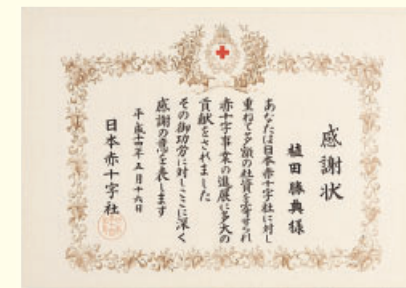 感謝状
植田勝典様
あなたは日本赤十字社に対し
重ねて多額の社資を寄せられ
赤十字事業の進展に多大の
貢献をされました
その御功労に対しここに深く
感謝の意を表します
平成十四年五月十六日
日本赤十字社